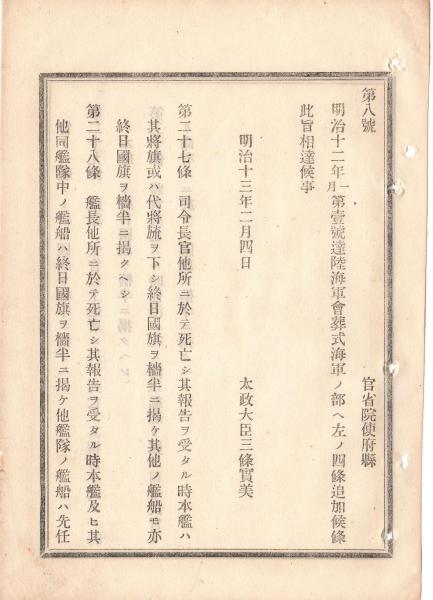 第八號
官省院使府縣
明治十二年一月第壹號達陸海軍會葬式海軍ノ部ヘ左ノ四條追加候條
此旨相達候事
明治十三年二月四日
太政大臣三條實美
第二十七條 司令長官他所ニ於テ死亡シ其報告ヲ受タル時本艦ハ
其將旗或ハ代將旒ヲ下シ終日國旗ヲ檣半ニ揭ケ其他ノ艦船モ亦
終日國旗ヲ檣半ニ揭クヘシ
第二十八條 艦長他所ニ於テ死亡シ其報告ヲ受タル時本艦及ヒ其
他同艦隊中ノ艦船ハ終日國旗ヲ檣半ニ揭ケ他艦隊ノ艦船ハ先任